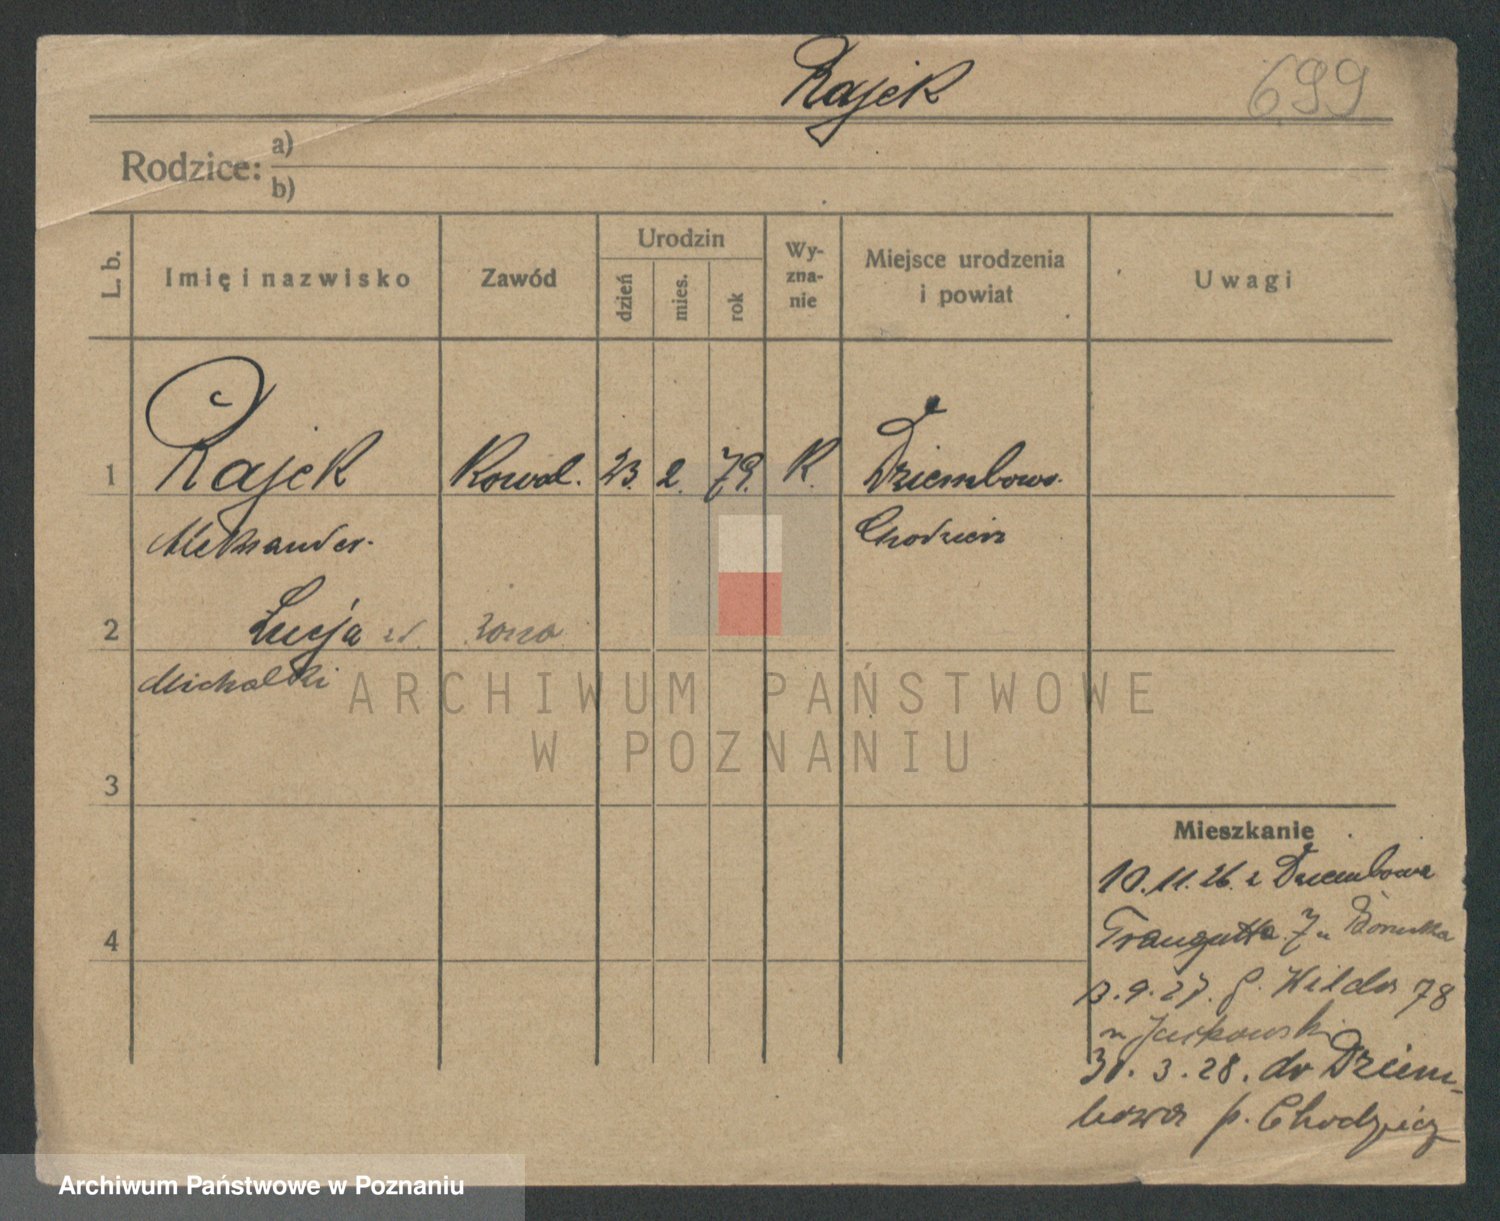 Rajek
699
Rodzice: a)
b)
L. b.
Imię i nazwisko
Zawód
Urodzin
dzień
mies.
rok
Wy-
zna-
nie
Miejsce urodzenia
i powiat
Uwagi
1 Rajek Kowal. 23. 2. 79. K. Dziembowo.
Aleksander. Chodzież
2 Łucja żona
Michalski
ARCHIWUM PAŃSTWOWE
W POZNANIU
3
Mieszkanie
10.11.26. z Dziembowa
4
Traugutta 7 u
13.9.27. G. Wilda 78
u Jackowski
30.3.28. do Dziem-
bowa p. Chodzież
Archiwum Państwowe w Poznaniu